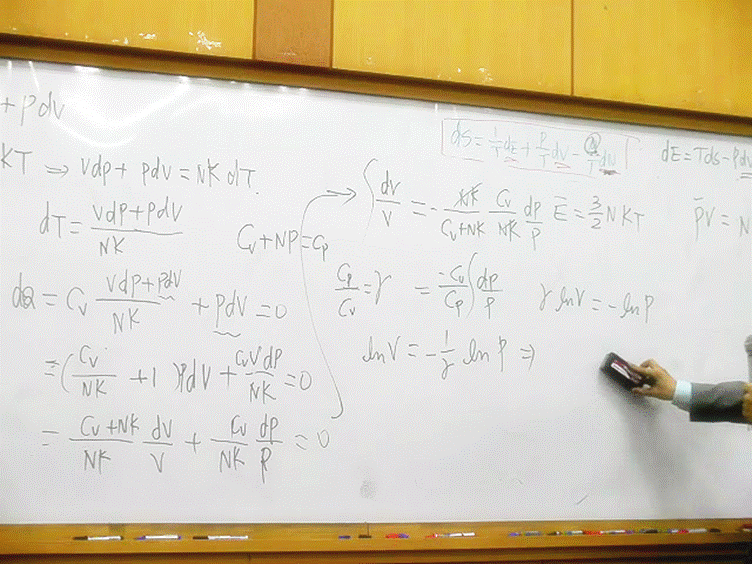 + pdV
KT ⇒ Vdp + pdV = NK dT.
dT = (Vdp + pdV)/NK
dQ = Cv (Vdp + pdV)/NK + pdV = 0
= (Cv/NK + 1) PdV + CvVdP/NK = 0
= (Cv + NK)/NK dV/V + Cv/NK dP/P = 0
Cv + NP = Cp
dS = 1/T dE + P/T dV −
dE = TdS − PdV
∫ dV/V = − NK/(Cv + NK) Cv/NK dP/P
Ē = 3/2 N KT
p̄V = N
Cp/Cv = γ
= −Cv/Cp ∫ dP/P
γ lnV = − lnP
lnV = − 1/γ ln P ⇒